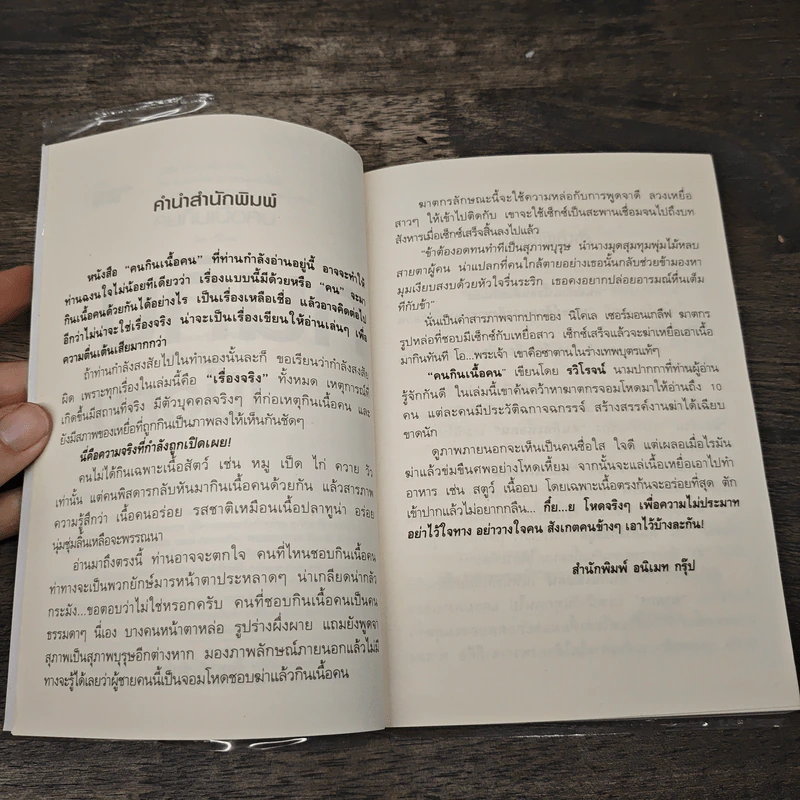 คำนำสำนักพิมพ์
หนังสือ “คนกินเนื้อคน” ที่ท่านกำลังอ่านอยู่นี้ อาจจะทำให้
ท่านฉงนใจไม่น้อยทีเดียวว่า เรื่องแบบนี้มีด้วยหรือ “คน” จะมา
กินเนื้อคนด้วยกันได้อย่างไร เป็นเรื่องเหลือเชื่อ แล้วอาจคิดต่อไป
อีกว่าไม่น่าจะใช่เรื่องจริง น่าจะเป็นเรื่องเขียนให้อ่านเล่นๆ เพื่อ
ความตื่นเต้นเสียมากกว่า
ถ้าท่านกำลังสงสัยไปในทำนองนั้นละก็ ขอเรียนว่ากำลังสงสัย
ผิด เพราะทุกเรื่องในเล่มนี้คือ “เรื่องจริง” ทั้งหมด เหตุการณ์ที่
เกิดขึ้นมีสถานที่จริง มีตัวบุคคลจริงๆ ที่ก่อเหตุกินเนื้อคน และ
ยังมีสภาพของเหยื่อที่ถูกกินเป็นภาพลงให้เห็นกันชัดๆ
นี่คือความจริงที่กำลังถูกเปิดเผย!
คนไม่ได้กินเฉพาะเนื้อสัตว์ เช่น หมู เป็ด ไก่ ควาย วัว
เท่านั้น แต่คนพิสดารกลับหันมากินเนื้อคนด้วยกัน แล้วสารภาพ
ความรู้สึกว่า เนื้อคนอร่อย รสชาติเหมือนเนื้อปลาทูน่า อร่อย
นุ่มชุ่มลิ้นเหลือจะพรรณนา
อ่านมาถึงตรงนี้ ท่านอาจจะตกใจ คนที่ไหนชอบกินเนื้อคน
ท่าทางจะเป็นพวกยักษ์มารหน้าตาประหลาดๆ น่าเกลียดน่ากลัว
กระมัง...ขอตอบว่าไม่ใช่หรอกครับ คนที่ชอบกินเนื้อคนเป็นคน
ธรรมดาๆ นี่เอง บางคนหน้าตาหล่อ รูปร่างผึ่งผาย แถมยังพูดจา
สุภาพเป็นสุภาพบุรุษอีกต่างหาก มองภาพลักษณ์ภายนอกแล้วไม่มี
ทางจะรู้ได้เลยว่าผู้ชายคนนี้เป็นจอมโหดชอบฆ่าแล้วกินเนื้อคน
ฆาตกรลักษณะนี้จะใช้ความหล่อกับการพูดจาดี ลวงเหยื่อ
สาวๆ ให้เข้าไปติดกับ เขาจะใช้เซ็กซ์เป็นสะพานเชื่อมจนไปถึงบท
สังหารเมื่อเซ็กซ์เสร็จสิ้นลงไปแล้ว
“ข้าต้องอดทนทำที่เป็นสุภาพบุรุษ นำนางมุดสุมทุมพุ่มไม้หลบ
สายตาผู้คน น่าแปลกที่คนใกล้ตายอย่างเธอนั้นกลับช่วยข้ามองหา
มุมเงียบสงบด้วยหัวใจรื่นระริก เธอคงอยากปลดปล่อยอารมณ์หื่นเต็ม
ที่กับข้า”
นั่นเป็นคำสารภาพจากปากของ นิโคเล เซอร์มอนเกลีฟ ฆาตกร
รูปหล่อที่ชอบมีเซ็กซ์กับเหยื่อสาว เซ็กซ์เสร็จแล้วจะฆ่าเหยื่อเอาเนื้อ
มากินทันที โอ...พระเจ้า เขาคือซาตานในร่างเทพบุตรแท้ๆ
“คนกินเนื้อคน” เรียบเรียงโดย รวิโรจน์ นามปากกาที่ท่านผู้อ่าน
รู้จักกันดี ในเล่มนี้เขาค้นคว้าหาฆาตกรจอมโหดมาให้อ่านถึง 10
คน แต่ละคนมีประวัติฉกาจฉกรรจ์ สร้างสรรค์งานฆ่าได้เฉียบ
ขาดนัก
ดูภายนอกจะเห็นเป็นคนซื่อใส ใจดี แต่เผลอเมื่อไรมัน
ฆ่าแล้วข่มขืนศพอย่างโหดเหี้ยม จากนั้นจะแล่เนื้อเหยื่อเอาไปทำ
อาหาร เช่น สตูว์ เนื้ออบ โดยเฉพาะเนื้อตรงก้นจะอร่อยที่สุด ตัก
เข้าปากแล้วไม่อยากกลืน... กึ๋ย...ย โหดจริงๆ เพื่อความไม่ประมาท
อย่าไว้ใจทาง อย่าวางใจคน สังเกตคนข้างๆ เอาไว้บ้างละกัน!
สำนักพิมพ์ อนิเมท กรุ๊ป